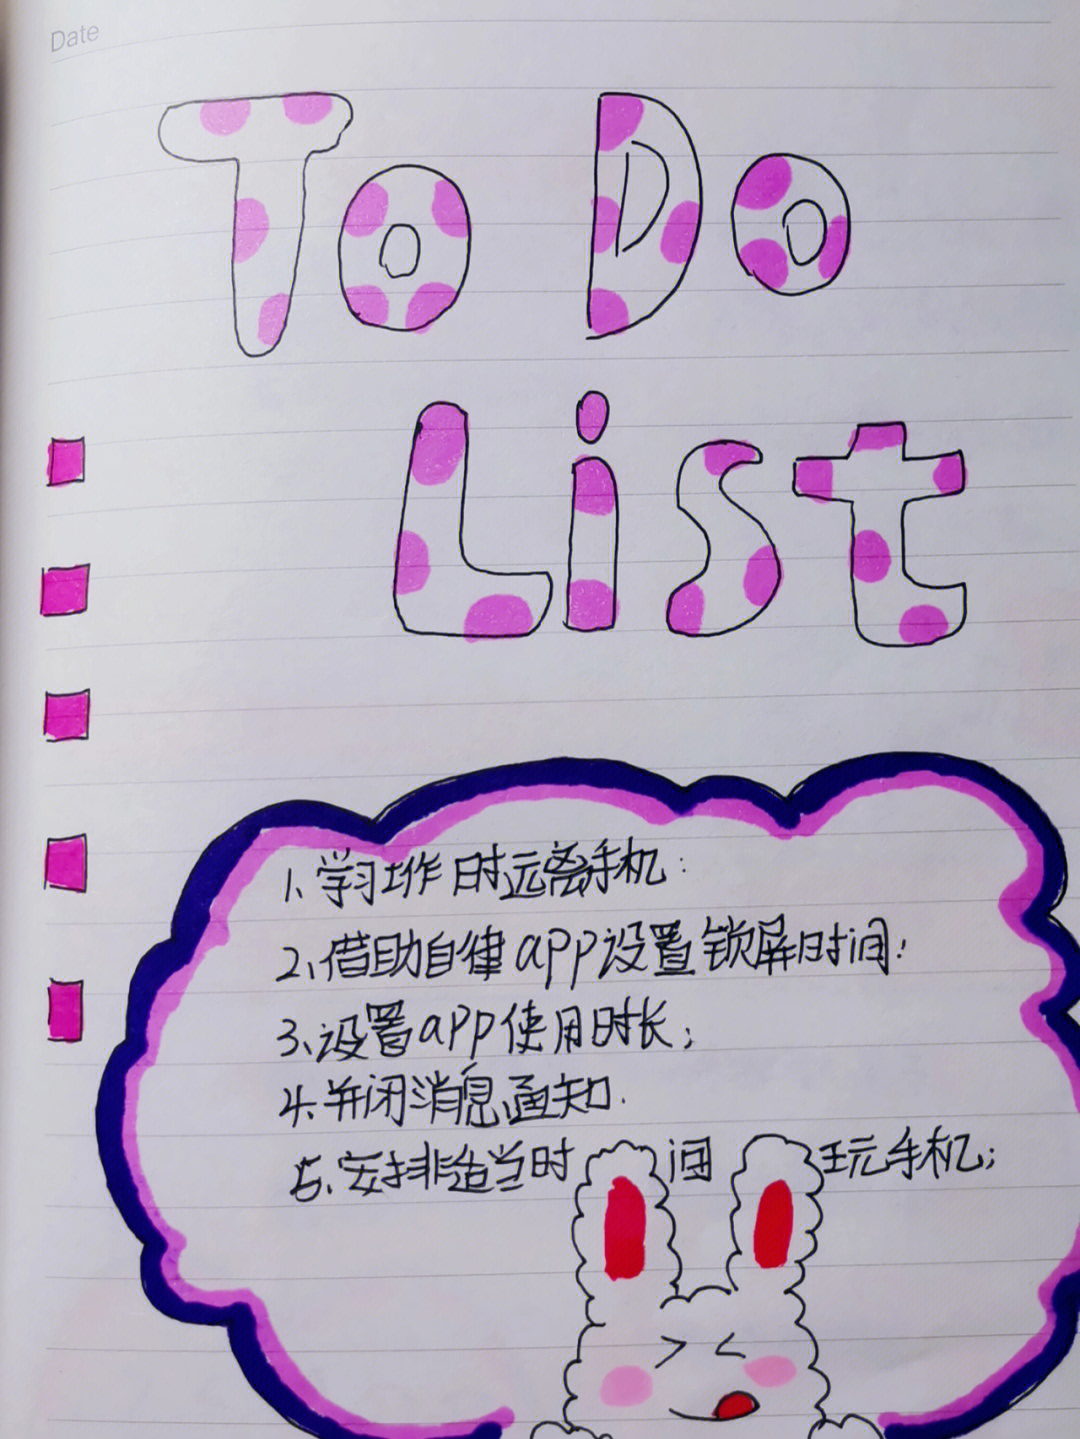 Date
To Do
List
1、学习工作时远离手机：
2、借助自律app设置锁屏时间：
3、设置app使用时长；
4、并闭消息通知.
5、安排适当时间玩手机；